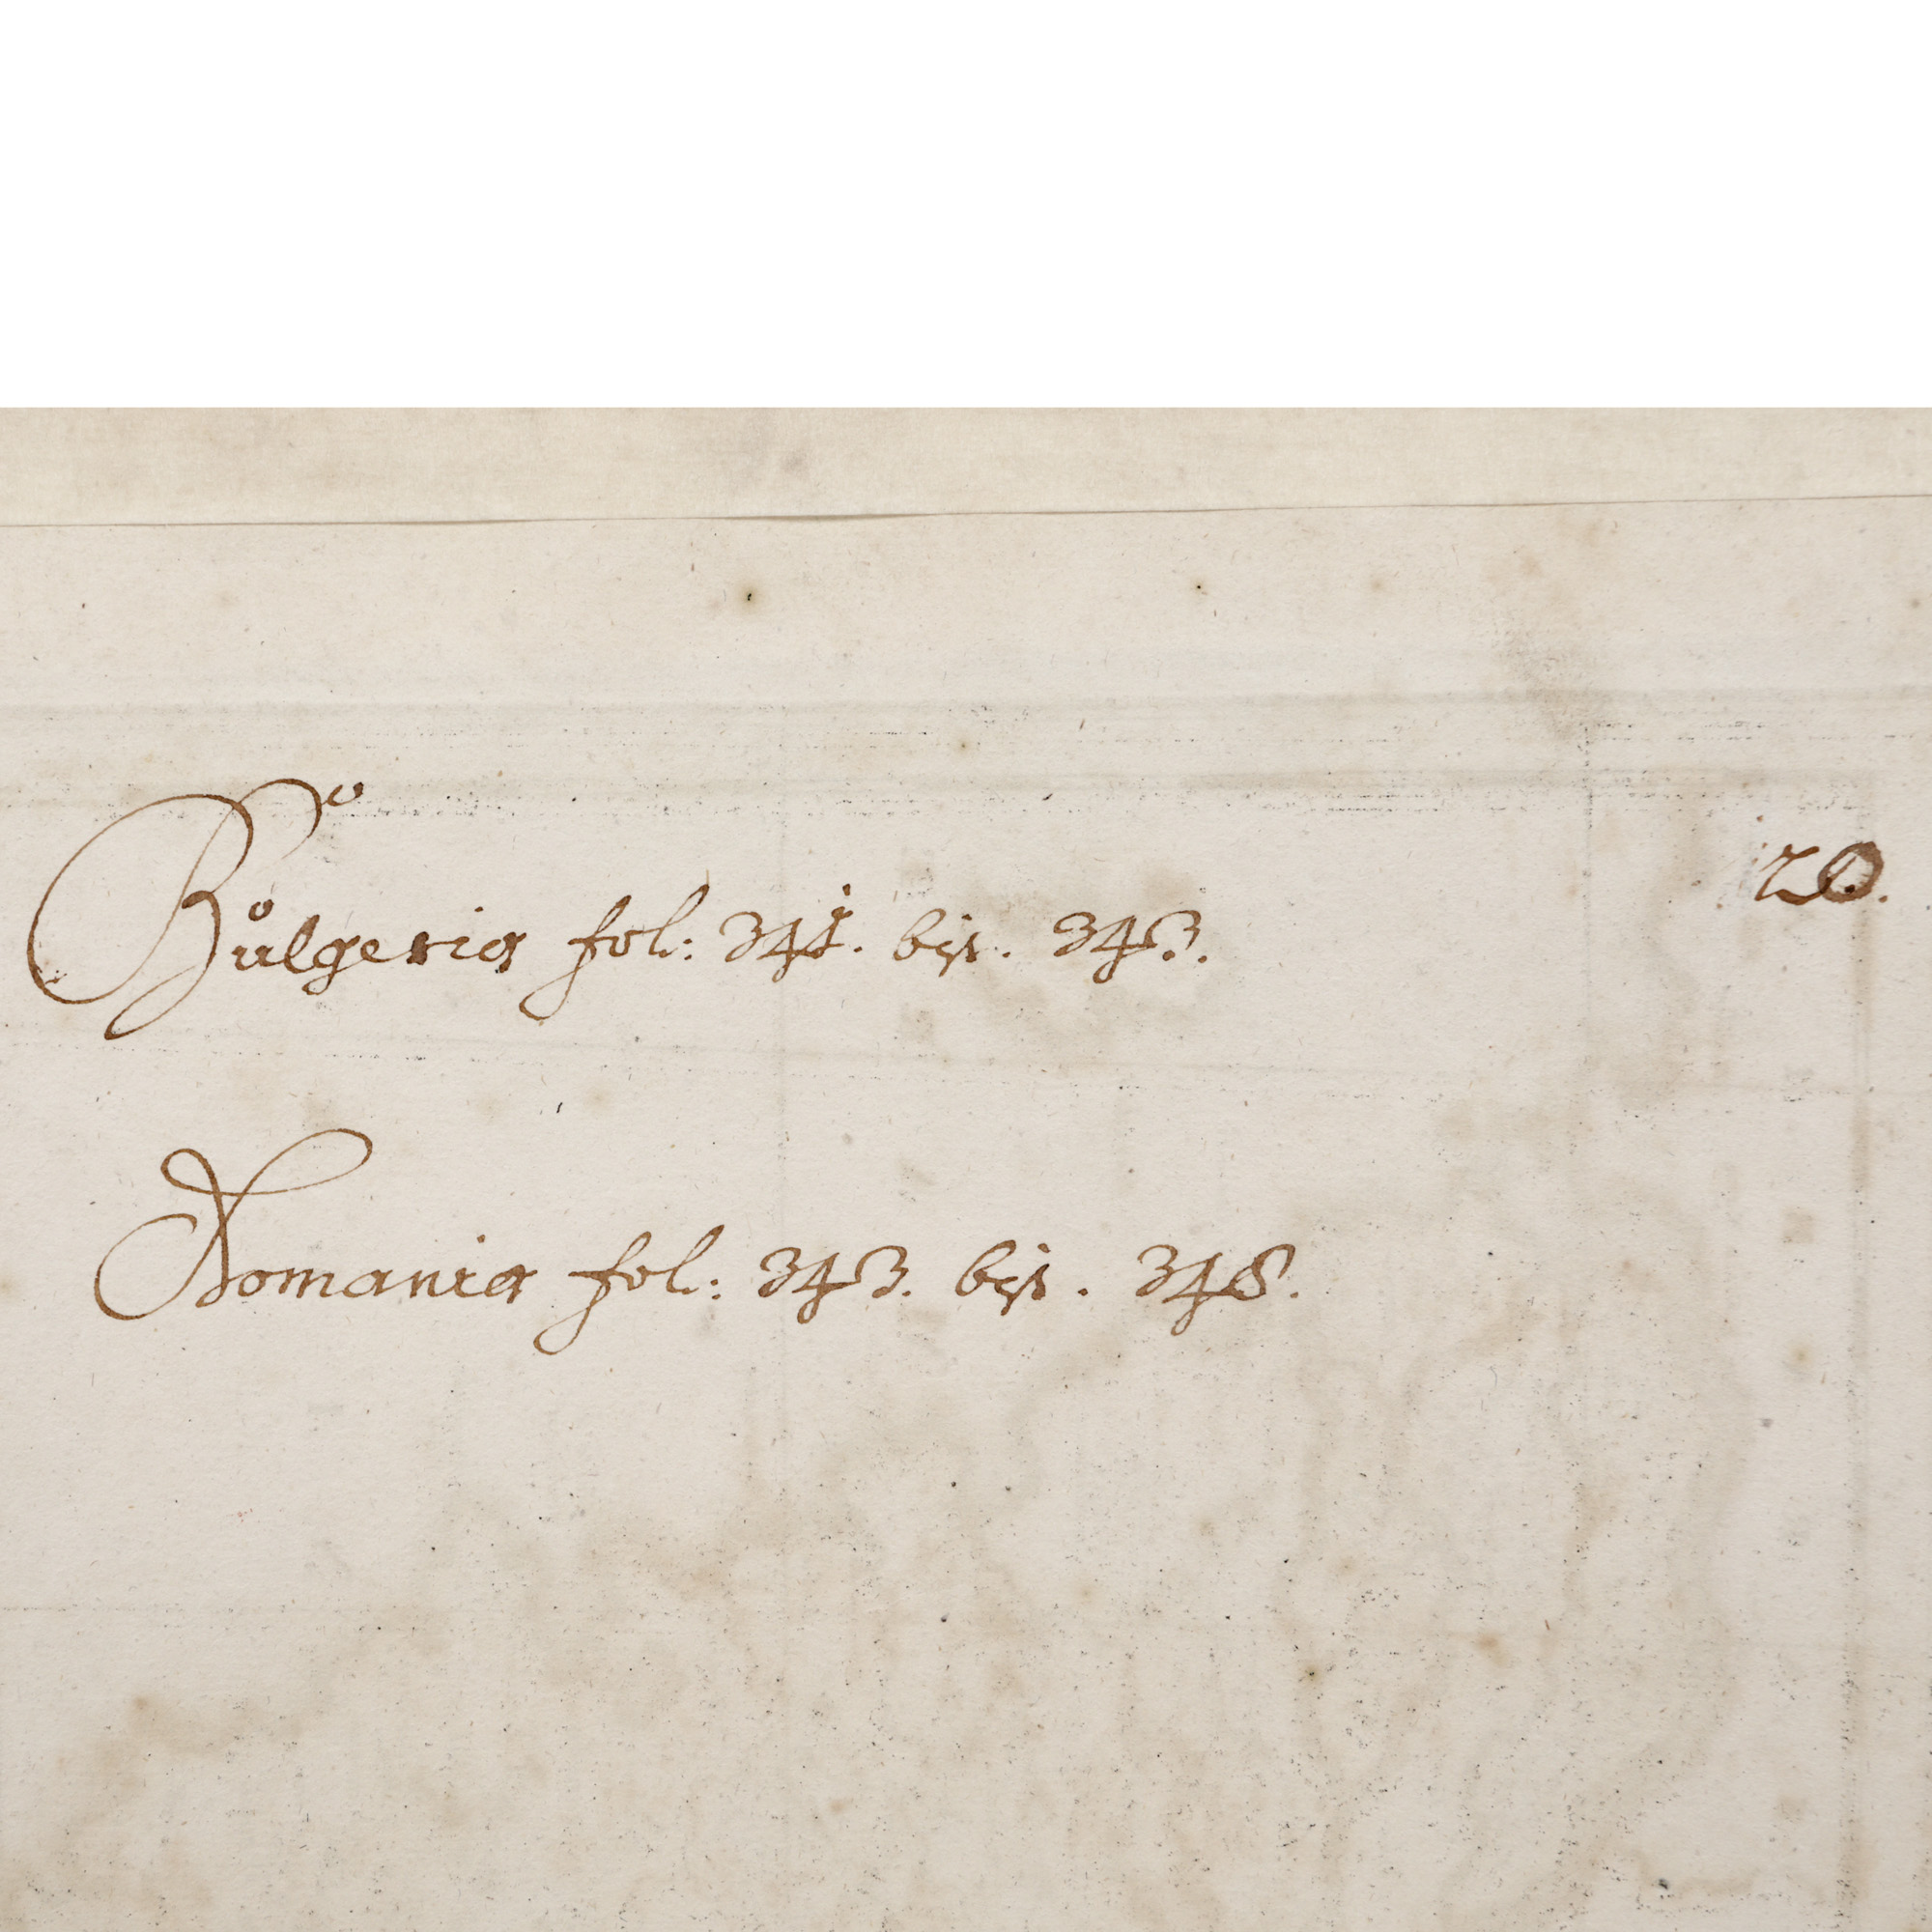 20.
Bůlgeria fol: 341. bis. 343.
Romania fol: 343. bis. 348.